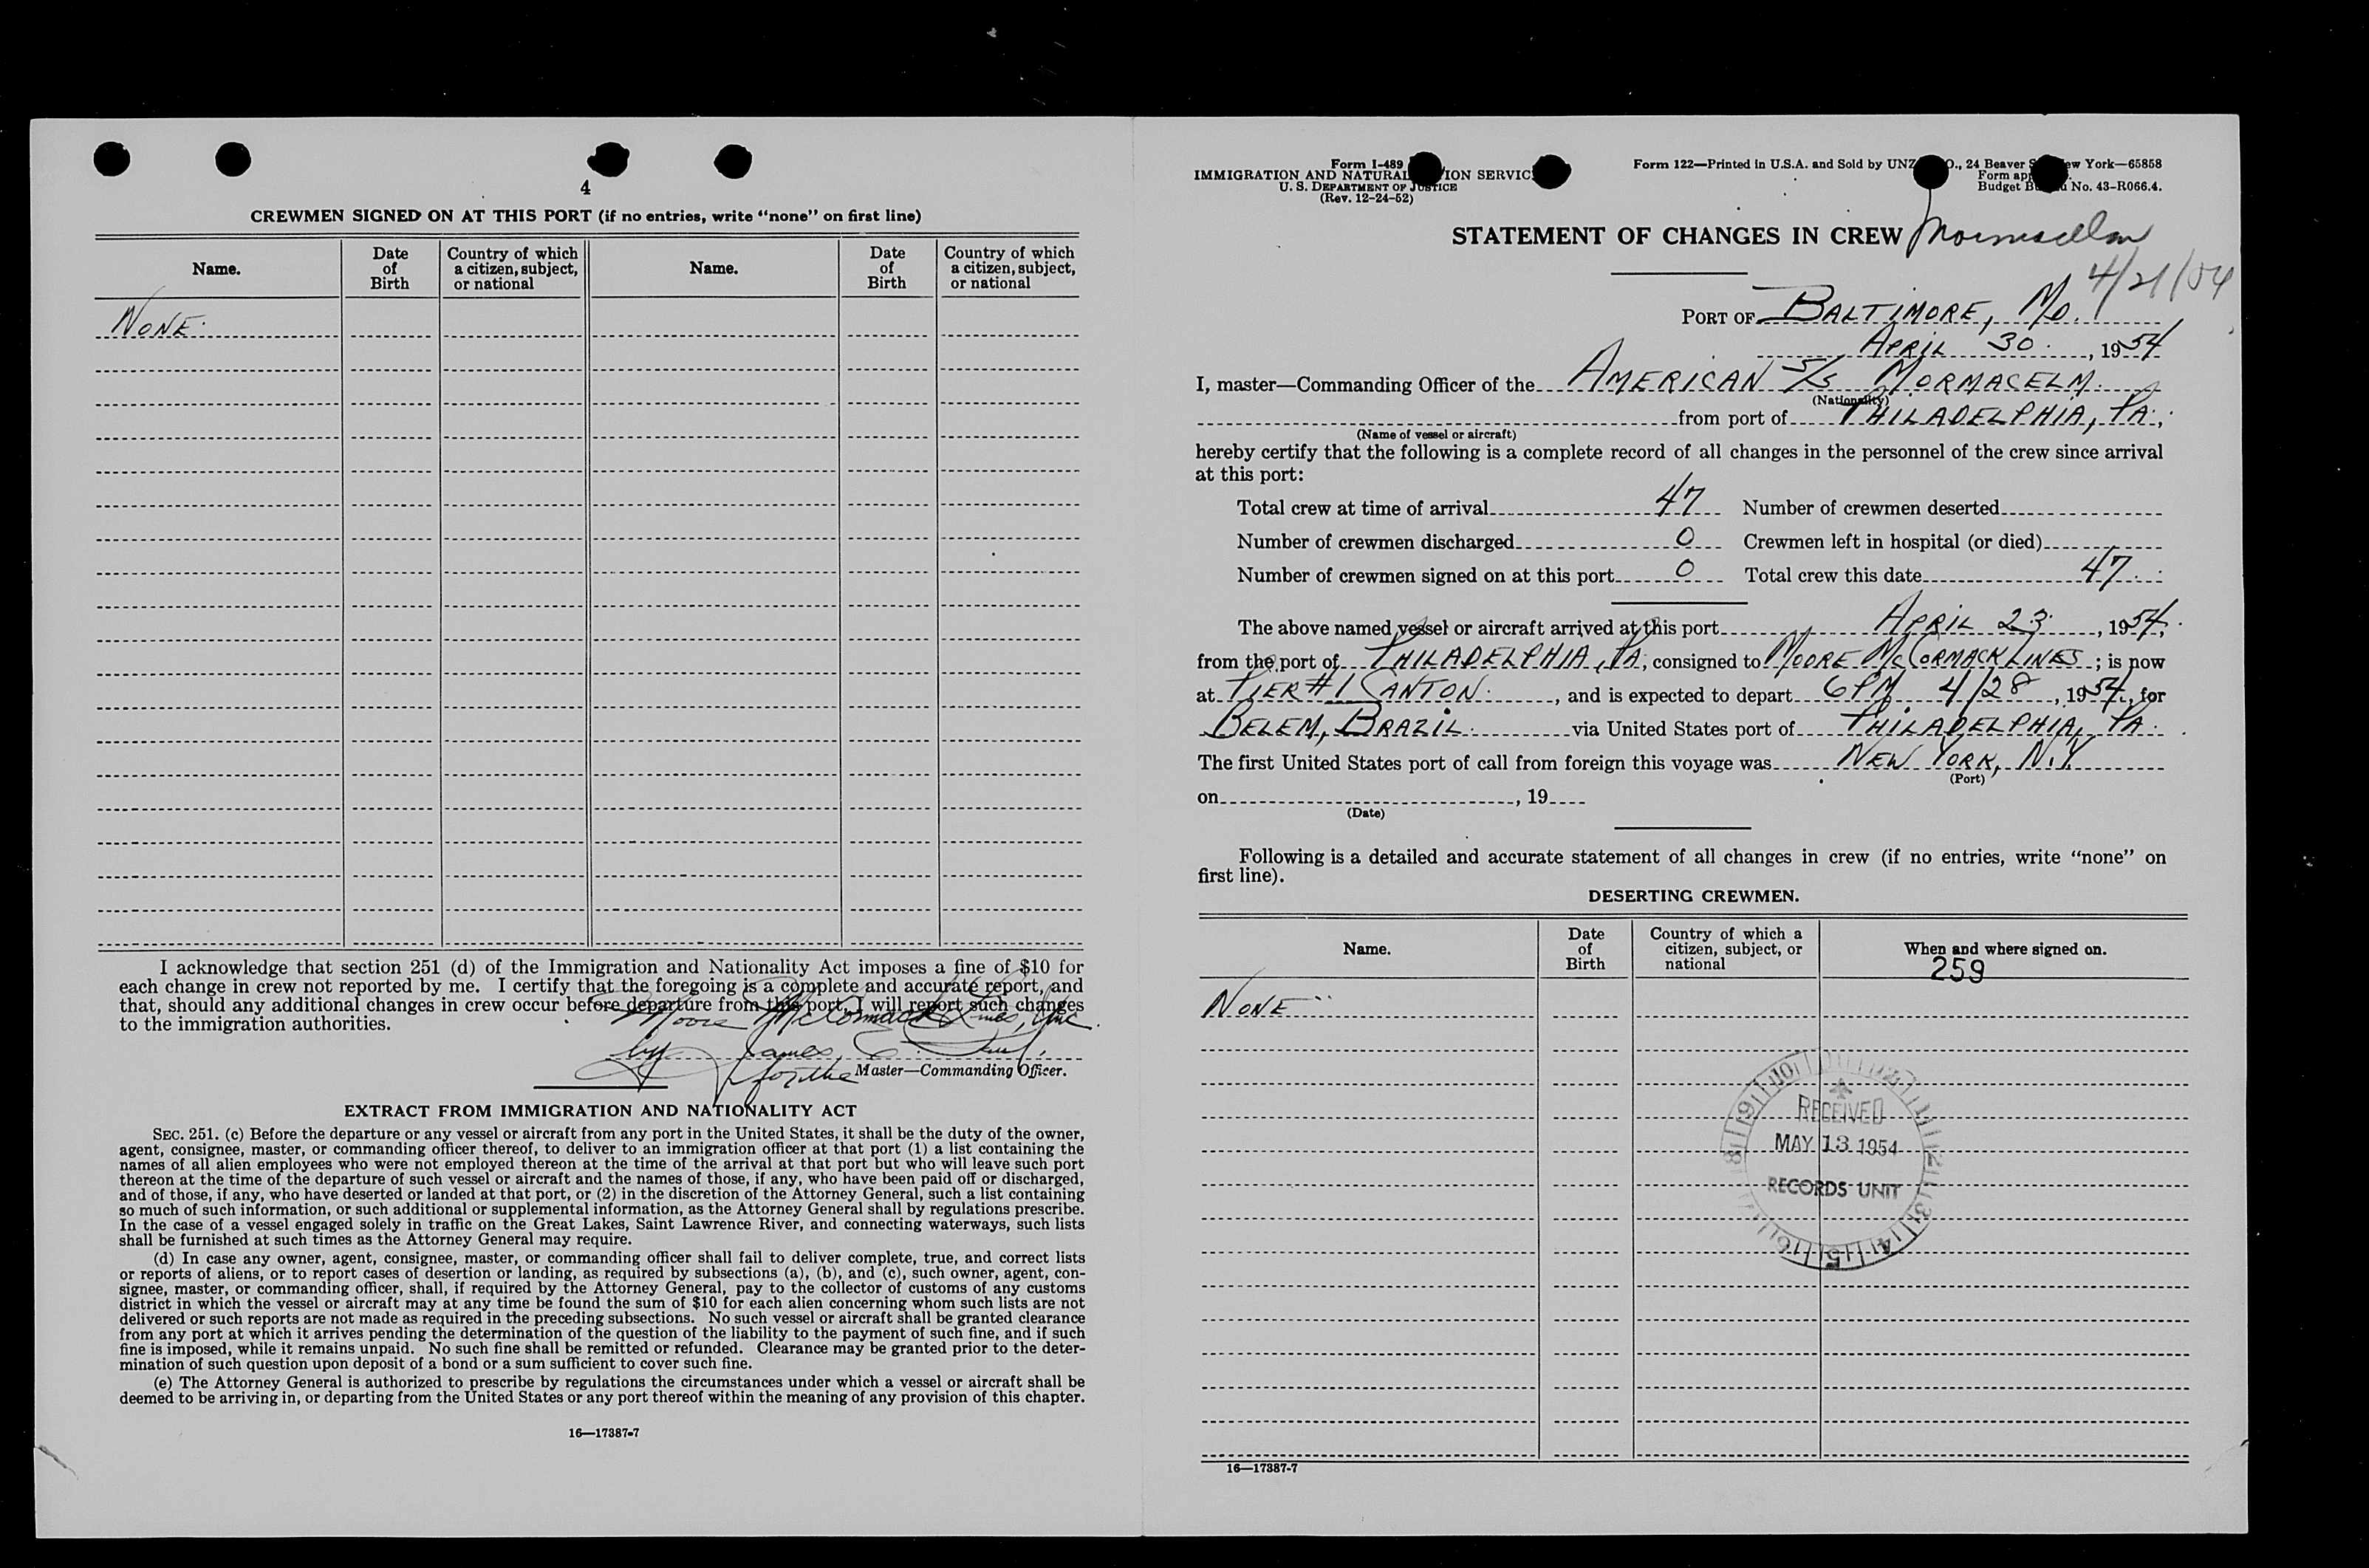 4
CREWMEN SIGNED ON AT THIS PORT (if no entries, write "none" on first line)
Name. Date of Birth Country of which a citizen, subject, or national Name. Date of Birth Country of which a citizen, subject, or national
NONE.
I acknowledge that section 251 (d) of the Immigration and Nationality Act imposes a fine of $10 for
each change in crew not reported by me. I certify that the foregoing is a complete and accurate report, and
that, should any additional changes in crew occur before departure from this port, I will report such changes
to the immigration authorities.
Moore McCormack Lines, Inc.
by James C.
for the Master—Commanding Officer.
EXTRACT FROM IMMIGRATION AND NATIONALITY ACT
SEC. 251. (c) Before the departure or any vessel or aircraft from any port in the United States, it shall be the duty of the owner,
agent, consignee, master, or commanding officer thereof, to deliver to an immigration officer at that port (1) a list containing the
names of all alien employees who were not employed thereon at the time of the arrival at that port but who will leave such port
thereon at the time of the departure of such vessel or aircraft and the names of those, if any, who have been paid off or discharged,
and of those, if any, who have deserted or landed at that port, or (2) in the discretion of the Attorney General, such a list containing
so much of such information, or such additional or supplemental information, as the Attorney General shall by regulations prescribe.
In the case of a vessel engaged solely in traffic on the Great Lakes, Saint Lawrence River, and connecting waterways, such lists
shall be furnished at such times as the Attorney General may require.
(d) In case any owner, agent, consignee, master, or commanding officer shall fail to deliver complete, true, and correct lists
or reports of aliens, or to report cases of desertion or landing, as required by subsections (a), (b), and (c), such owner, agent, con-
signee, master, or commanding officer, shall, if required by the Attorney General, pay to the collector of customs of any customs
district in which the vessel or aircraft may at any time be found the sum of $10 for each alien concerning whom such lists are not
delivered or such reports are not made as required in the preceding subsections. No such vessel or aircraft shall be granted clearance
from any port at which it arrives pending the determination of the question of the liability to the payment of such fine, and if such
fine is imposed, while it remains unpaid. No such fine shall be remitted or refunded. Clearance may be granted prior to the deter-
mination of such question upon deposit of a bond or a sum sufficient to cover such fine.
(e) The Attorney General is authorized to prescribe by regulations the circumstances under which a vessel or aircraft shall be
deemed to be arriving in, or departing from the United States or any port thereof within the meaning of any provision of this chapter.
16—17387-7
Form I-489
IMMIGRATION AND NATURAL ION SERVIC
U. S. DEPARTMENT OF JUSTICE
(Rev. 12-24-52)
Form 122—Printed in U.S.A. and Sold by UNZ O., 24 Beaver S ew York—65858
Form ap
Budget B u No. 43-R066.4.
STATEMENT OF CHANGES IN CREW Mormacelm
4/21/54
PORT OF BALTIMORE, MD.
APRIL 30. , 1954
I, master—Commanding Officer of the AMERICAN S/S MORMACELM.
(Nationality)
from port of PHILADELPHIA, PA.,
(Name of vessel or aircraft)
hereby certify that the following is a complete record of all changes in the personnel of the crew since arrival
at this port:
Total crew at time of arrival 47 Number of crewmen deserted
Number of crewmen discharged 0 Crewmen left in hospital (or died)
Number of crewmen signed on at this port 0 Total crew this date 47.
The above named vessel or aircraft arrived at this port APRIL 23. , 1954,
from the port of PHILADELPHIA, PA, consigned to MOORE McCORMACK LINES ; is now
at PIER #1 CANTON. , and is expected to depart 6PM 4/28 , 1954, for
BELEM, BRAZIL. via United States port of PHILADELPHIA, PA.
The first United States port of call from foreign this voyage was NEW YORK, N.Y.
(Port)
on , 19
(Date)
Following is a detailed and accurate statement of all changes in crew (if no entries, write "none" on
first line).
DESERTING CREWMEN.
Name. Date of Birth Country of which a citizen, subject, or national When and where signed on.
259
NONE
RECEIVED
MAY 13 1954
RECORDS UNIT
16—17387-7